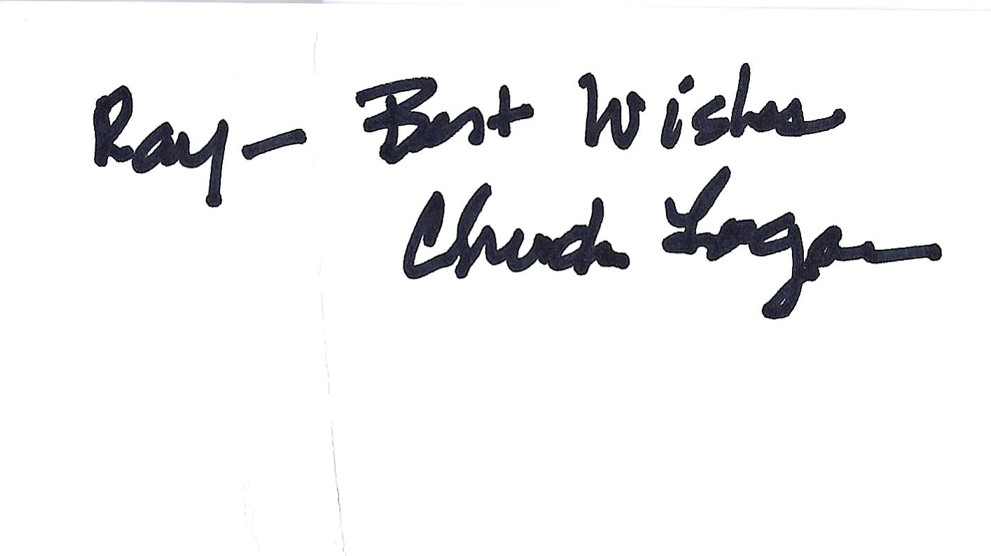 Ray – Best Wishes
Chuck Logan